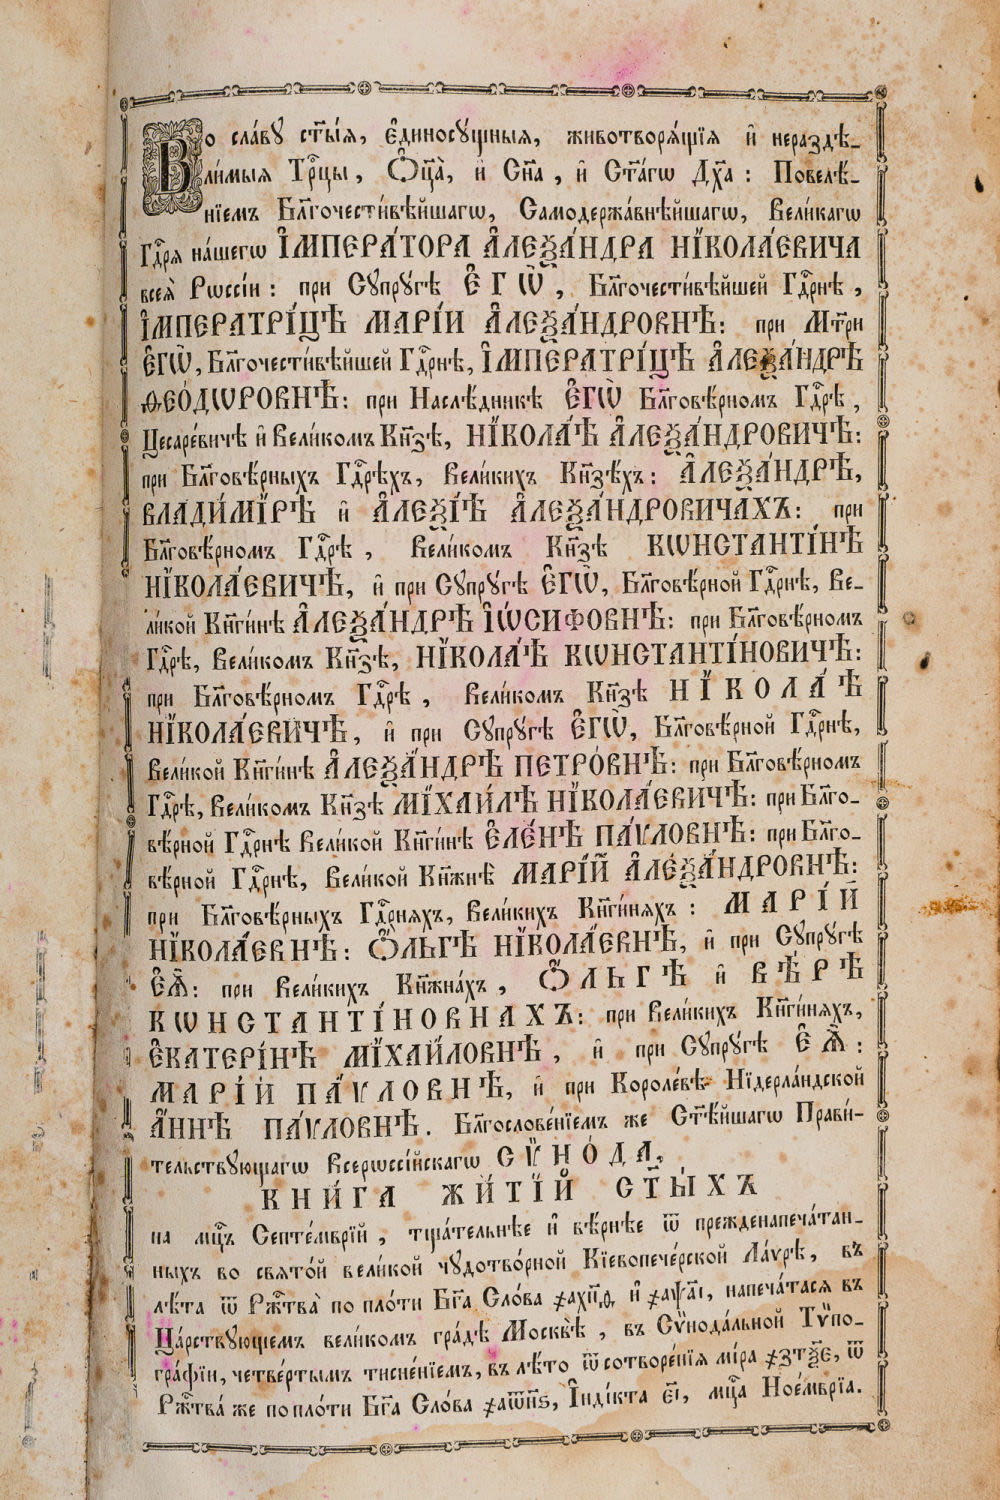 Во сла́вꙋ ст҃ы́ѧ, є҆диносꙋ́щныѧ, животворѧ́щїѧ и҆ нераздѣ-
ли́мыѧ Трⷪ҇цы, Ѻ҆ц҃а̀, и҆ Сн҃а, и҆ Ст҃а́гѡ Дх҃а: Повелѣ́-
нїемъ Бл҃гочести́вѣйшагѡ, Самодержа́внѣйшагѡ, Вели́кагѡ
Гдⷭ҇рѧ на́шегѡ І҆МПЕРА́ТОРА А҆ЛЕѮА́НДРА НЇКОЛА́ЕВИЧА
всеѧ̀ Рѡссі́и: при Сꙋпрꙋ́гѣ Є҆ГѠ̀, Бл҃гочести́вѣйшей Гдⷭ҇рнѣ,
І҆МПЕРАТРІ́ЦѢ МАРІ́И А҆ЛЕѮА́НДРОВНѢ: при Мт҃ри
Є҆ГѠ̀, Бл҃гочести́вѣйшей Гдⷭ҇рнѣ, І҆МПЕРАТРІ́ЦѢ А҆ЛЕѮА́НДРѢ
ѲЕО́ДѠРОВНѢ: при Наслѣ́дникѣ Є҆ГѠ̀ Бл҃говѣ́рномъ Гдⷭ҇рѣ,
Цесаре́вичѣ и҆ Вели́комъ Кн҃зѣ, НЇКОЛА́Ѣ А҆ЛЕѮА́НДРОВИЧѢ:
при Бл҃говѣ́рныхъ Гдⷭ҇рѣхъ, Вели́кихъ Кн҃зѣхъ: А҆ЛЕѮА́НДРѢ,
ВЛАДИ́МЇРѢ и҆ А҆ЛЕѮІ́Ѣ А҆ЛЕѮА́НДРОВИЧАХЪ: при
Бл҃говѣ́рномъ Гдⷭ҇рѣ, Вели́комъ Кн҃зѣ КѠНСТАНТІ́НѢ
НЇКОЛА́ЕВИЧѢ, и҆ при Сꙋпрꙋ́гѣ Є҆ГѠ̀, Бл҃говѣ́рной Гдⷭ҇рнѣ, Ве-
ли́кой Кн҃ги́нѣ А҆ЛЕѮА́НДРѢ І҆Ѡ́СИФОВНѢ: при Бл҃говѣ́рномъ
Гдⷭ҇рѣ, Вели́комъ Кн҃зѣ, НЇКОЛА́Ѣ КѠНСТАНТІ́НОВИЧѢ:
при Бл҃говѣ́рномъ Гдⷭ҇рѣ, Вели́комъ Кн҃зѣ НЇКОЛА́Ѣ
НЇКОЛА́ЕВИЧѢ, и҆ при Сꙋпрꙋ́гѣ Є҆ГѠ̀, Бл҃говѣ́рной Гдⷭ҇рнѣ,
Вели́кой Кн҃ги́нѣ А҆ЛЕѮА́НДРѢ ПЕТРО́ВНѢ: при Бл҃говѣ́рномъ
Гдⷭ҇рѣ, Вели́комъ Кн҃зѣ МЇХАИ́ЛѢ НЇКОЛА́ЕВИЧѢ: при Бл҃го-
вѣ́рной Гдⷭ҇рнѣ Вели́кой Кн҃ги́нѣ Є҆ЛЕ́НѢ ПА́ѴЛОВНѢ: при Бл҃го-
вѣ́рной Гдⷭ҇рнѣ, Вели́кой Кн҃жнѣ̀ МАРІ́Й А҆ЛЕѮА́НДРОВНѢ:
при Бл҃говѣ́рныхъ Гдⷭ҇рнѧхъ, Вели́кихъ Кн҃ги́нѧхъ: МАРІ́Й
НЇКОЛА́ЕВНѢ: Ѻ҆́ЛЬГѢ НЇКОЛА́ЕВНѢ, и҆ при Сꙋпрꙋ́гѣ
Є҆Ѧ̀: при Вели́кихъ Кн҃жна́хъ, Ѻ҆́ЛЬГѢ и҆ ВѢ́РѢ
КѠНСТАНТІ́НОВНАХЪ: при Вели́кихъ Кн҃ги́нѧхъ,
Є҆КАТЕРІ́НѢ МЇХА́ЙЛОВНѢ, и҆ при Сꙋпрꙋ́гѣ Є҆Ѧ̀:
МАРІ́Й ПА́ѴЛОВНѢ, и҆ при Короле́вѣ Нїдерла́ндской
А҆́ННѢ ПА́ѴЛОВНѢ. Бл҃гослове́нїемъ же Ст҃ѣ́йшагѡ Прави́-
тельствꙋющагѡ Всерѡссі́йскагѡ СѴНО́ДА,
КНИ́ГА ЖИТІ́Й СТ҃Ы́ХЪ
на мцⷭ҇ъ Септе́мврїй, тща́тельнѣе и҆ вѣ́рнѣе ѿ прежденапеча́тан-
ныхъ во свято́й вели́кой чꙋдотво́рной Кі́евопече́рской Ла́ѵрѣ, въ
лѣ́та ѿ Рж҃тва̀ по пло́ти Бг҃а Сло́ва ҂ахп҃ѳ и҆ ҂аѱаі, напеча́тасѧ въ
Ца́рствꙋющемъ вели́комъ гра́дѣ Москвѣ̀, въ Сѷнода́льной Тѷпо-
гра́фіи, четве́ртымъ тисне́нїемъ, въ лѣ́то ѿ сотворе́нїѧ мі́ра ҂зтѯ҃є, ѿ
Рж҃тва̀ же по пло́ти Бг҃а Сло́ва ҂аѿн҃ѕ, І҆ндікта є҃і, мцⷭ҇а Ное́мврїа.